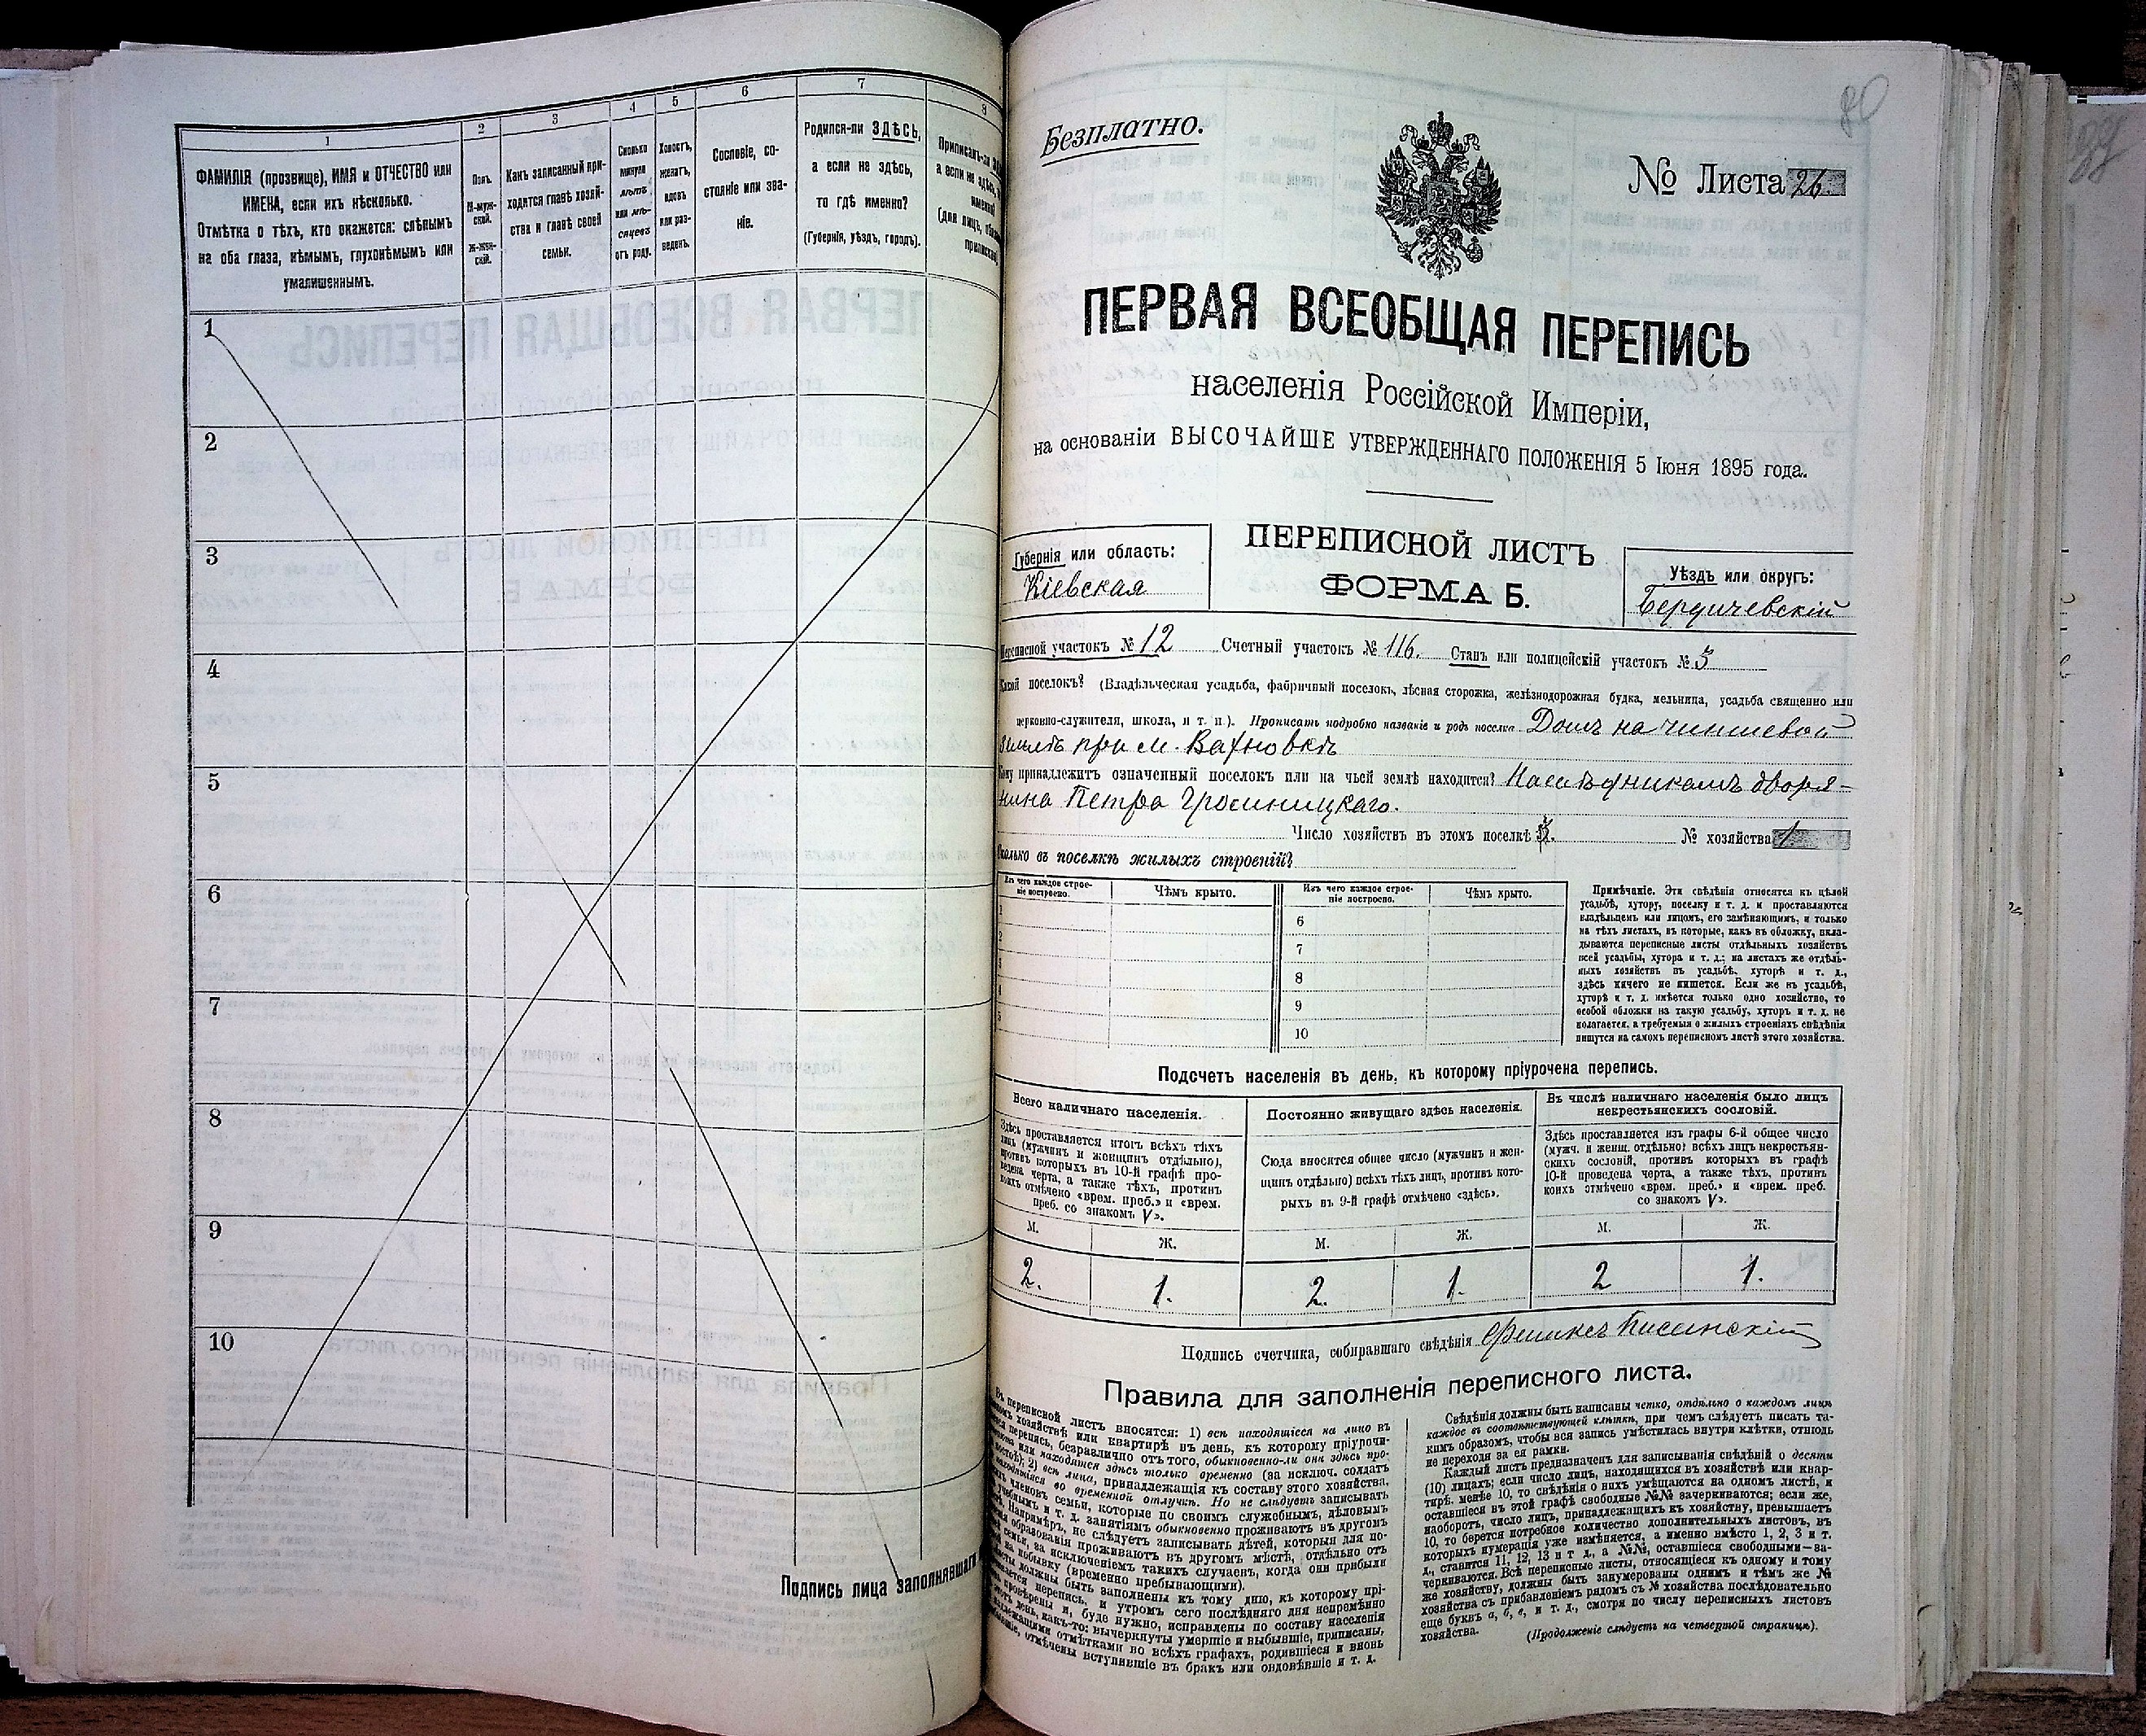 1
2
3
4
5
6
7
8
ФАМИЛІЯ (прозвище), ИМЯ и ОТЧЕСТВО или
ИМЕНА, если ихъ нѣсколько.
Отмѣтка о тѣхъ, кто окажется: слѣпымъ
на оба глаза, нѣмымъ, глухонѣмымъ или
умалишеннымъ.
Полъ.
М-муж-
ской.
Ж-жен-
скій.
Какъ записанный при-
ходится главѣ хозяй-
ства и главѣ своей
семьи.
Сколько
минуло
лѣтъ
или мѣ-
сяцевъ
отъ роду.
Холостъ,
женатъ,
вдовъ
или раз-
веденъ.
Сословіе, со-
стояніе или зва-
ніе.
Родился-ли ЗДѢСЬ,
а если не здѣсь,
то гдѣ именно?
(Губернія, уѣздъ, городъ).
Приписанъ-ли
а если не здѣсь,
(для лицъ,
1
2
3
4
5
6
7
8
9
10
Подпись лица заполнявшаго
80
Безплатно.
№ Листа 26.
ПЕРВАЯ ВСЕОБЩАЯ ПЕРЕПИСЬ
населенія Россійской Имперіи,
на основаніи ВЫСОЧАЙШЕ УТВЕРЖДЕННАГО ПОЛОЖЕНІЯ 5 Іюня 1895 года.
Губернія или область:
Кіевская
ПЕРЕПИСНОЙ ЛИСТЪ
ФОРМА Б.
Уѣздъ или округъ:
Бердичевскій
Переписной участокъ № 12 Счетный участокъ № 116. Станъ или полицейскій участокъ № 3
Какой поселокъ? (Владѣльческая усадьба, фабричный поселокъ, лѣсная сторожка, желѣзнодорожная будка, мельница, усадьба священно или
церковно-служителя, школа, и т. п.). Прописать подробно названіе и родъ поселка Домъ на чиншевой
землѣ при м. Вахновкѣ
Кому принадлежитъ означенный поселокъ или на чьей землѣ находится? Наслѣдникамъ дворя-
нина Петра
Число хозяйствъ въ этомъ поселкѣ № хозяйства 1
Сколько въ поселкѣ жилыхъ строеній?
Изъ чего каждое строе-
ніе построено.
Чѣмъ крыто.
Изъ чего каждое строе-
ніе построено.
Чѣмъ крыто.
1
2
3
4
5
6
7
8
9
10
Примѣчаніе. Эти свѣдѣнія относятся къ цѣлой
усадьбѣ, хутору, поселку и т. д. и проставляются
владѣльцемъ или лицомъ, его замѣняющимъ, и только
на тѣхъ листахъ, въ которые, какъ въ обложку, вкла-
дываются переписные листы отдѣльныхъ хозяйствъ
всей усадьбы, хутора и т. д.; на листахъ же отдѣль-
ныхъ хозяйствъ въ усадьбѣ, хуторѣ и т. д.,
здѣсь ничего не пишется. Если же въ усадьбѣ,
хуторѣ и т. д. имѣется только одно хозяйство, то
особой обложки на такую усадьбу, хуторъ и т. д. не
полагается, а требуемыя о жилыхъ строеніяхъ свѣдѣнія
пишутся на самомъ переписномъ листѣ этого хозяйства.
Подсчетъ населенія въ день, къ которому пріурочена перепись.
Всего наличнаго населенія.
Здѣсь проставляется итогъ всѣхъ тѣхъ
лицъ (мужчинъ и женщинъ отдѣльно),
противъ которыхъ въ 10-й графѣ про-
ведена черта, а также тѣхъ, противъ
коихъ отмѣчено «врем. преб.» и «врем.
преб. со знакомъ V».
Постоянно живущаго здѣсь населенія.
Сюда вносится общее число (мужчинъ и жен-
щинъ отдѣльно) всѣхъ тѣхъ лицъ, противъ кото-
рыхъ въ 9-й графѣ отмѣчено «здѣсь».
Въ числѣ наличнаго населенія было лицъ
некрестьянскихъ сословій.
Здѣсь проставляется изъ графы 6-й общее число
(мужч. и женщ. отдѣльно) всѣхъ лицъ некрестьян-
скихъ сословій, противъ которыхъ въ графѣ
10-й проведена черта, а также тѣхъ, противъ
коихъ отмѣчено «врем. преб.» и «врем. преб.
со знакомъ V».
М. Ж. М. Ж. М. Ж.
2. 1. 2. 1. 2 1.
Подпись счетчика, собиравшаго свѣдѣнія
Правила для заполненія переписного листа.
Въ переписной листъ вносятся: 1) всѣ находящіеся на лицо въ
хозяйствѣ или квартирѣ въ день, къ которому пріурочи-
перепись, безразлично отъ того, обыкновенно-ли они здѣсь про-
или находятся здѣсь только временно (за исключ. солдатъ
2) всѣ лица, принадлежащія къ составу этого хозяйства,
находящіяся во временной отлучкѣ. Но не слѣдуетъ записывать
членовъ семьи, которые по своимъ служебнымъ, дѣловымъ
учебнымъ и т. д. занятіямъ обыкновенно проживаютъ въ другомъ
Напримѣръ, не слѣдуетъ записывать дѣтей, которыя для по-
образованія проживаютъ въ другомъ мѣстѣ, отдѣльно отъ
семьи, за исключеніемъ такихъ случаевъ, когда они прибыли
на побывку (временно пребывающими).
должны быть заполнены къ тому дню, къ которому прі-
перепись, и утромъ сего послѣдняго дня непремѣнно
провѣрены и, буде нужно, исправлены по составу населенія
день, какъ-то: вычеркнуты умершіе и выбывшіе, приписаны,
отмѣтками во всѣхъ графахъ, родившіеся и вновь
отмѣчены вступившіе въ бракъ или овдовѣвшіе и т. д.
Свѣдѣнія должны быть написаны четко, отдѣльно о каждомъ лицѣ
каждое въ соотвѣтствующей клѣткѣ, при чемъ слѣдуетъ писать та-
кимъ образомъ, чтобы вся запись умѣстилась внутри клѣтки, отнюдь
не переходя за ея рамки.
Каждый листъ предназначенъ для записыванія свѣдѣній о десяти
(10) лицахъ; если число лицъ, находящихся въ хозяйствѣ или квар-
тирѣ, менѣе 10, то свѣдѣнія о нихъ умѣщаются на одномъ листѣ, и
оставшіеся въ этой графѣ свободные №№ зачеркиваются; если же,
наоборотъ, число лицъ, принадлежащихъ къ хозяйству, превышаетъ
10, то берется потребное количество дополнительныхъ листовъ, въ
которыхъ нумерація уже измѣняется, а именно вмѣсто 1, 2, 3 и т.
д., ставится 11, 12, 13 и т д., а №№, оставшіеся свободными—за-
черкиваются. Всѣ переписные листы, относящіеся къ одному и тому
же хозяйству, должны быть занумерованы однимъ и тѣмъ же №
хозяйства съ прибавленіемъ рядомъ съ № хозяйства послѣдовательно
еще буквъ а, б, в, и т. д., смотря по числу переписныхъ листовъ
хозяйства.
(Продолженіе слѣдуетъ на четвертой страницѣ).